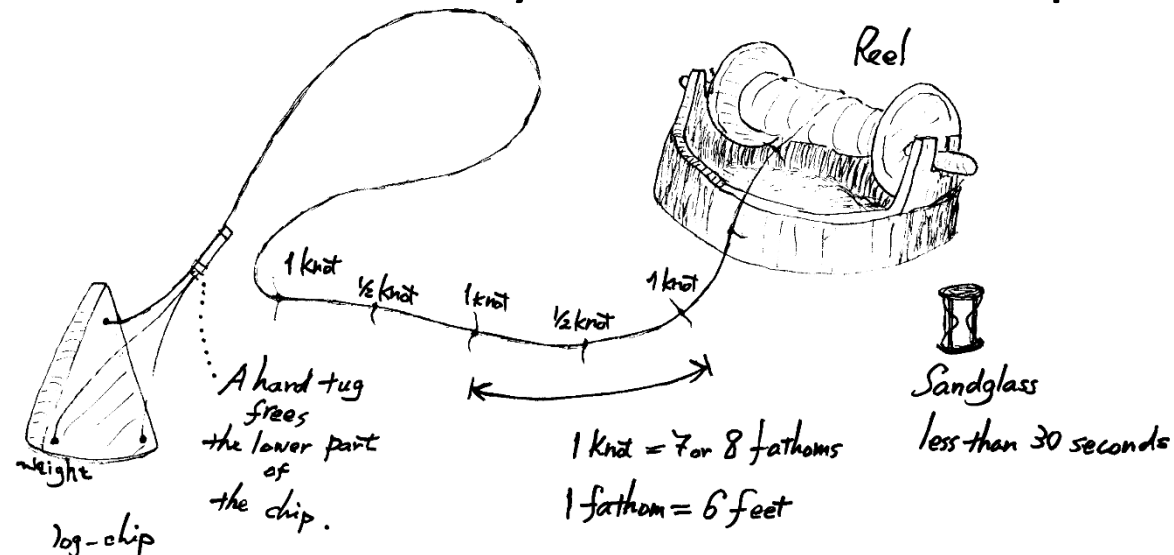 Reel
1 knot
½ knot
1 knot
½ knot
1 knot
A hard tug
frees
the lower part
of
the chip.
weight
log-chip
1 knot = 7 or 8 fathoms
1 fathom = 6 feet
Sandglass
less than 30 seconds